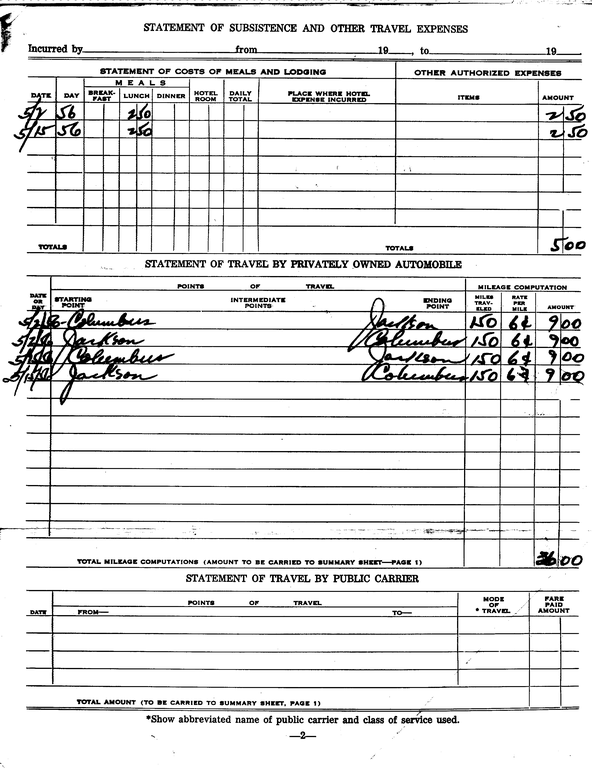 STATEMENT OF SUBSISTENCE AND OTHER TRAVEL EXPENSES
Incurred by from 19 , to 19
STATEMENT OF COSTS OF MEALS AND LODGING OTHER AUTHORIZED EXPENSES
MEALS
DATE DAY BREAK-FAST LUNCH DINNER HOTEL ROOM DAILY TOTAL PLACE WHERE HOTEL EXPENSE INCURRED ITEMS AMOUNT
5/2 56 250 2 50
5/15 56 250 2 50
TOTALS TOTALS 5 00
STATEMENT OF TRAVEL BY PRIVATELY OWNED AUTOMOBILE
POINTS OF TRAVEL MILEAGE COMPUTATION
DATE OR DAY STARTING POINT INTERMEDIATE POINTS ENDING POINT MILES TRAV-ELED RATE PER MILE AMOUNT
5/2/56 Columbus Jackson 150 6¢ 9 00
5/2/56 Jackson Columbus 150 6¢ 9 00
Columbus Jackson 150 6¢ 9 00
Jackson Columbus 150 6¢ 9 00
TOTAL MILEAGE COMPUTATIONS (AMOUNT TO BE CARRIED TO SUMMARY SHEET—PAGE 1) 36 00
STATEMENT OF TRAVEL BY PUBLIC CARRIER
POINTS OF TRAVEL
DATE FROM— TO— MODE OF * TRAVEL FARE PAID AMOUNT
TOTAL AMOUNT (TO BE CARRIED TO SUMMARY SHEET, PAGE 1)
*Show abbreviated name of public carrier and class of service used.
—2—